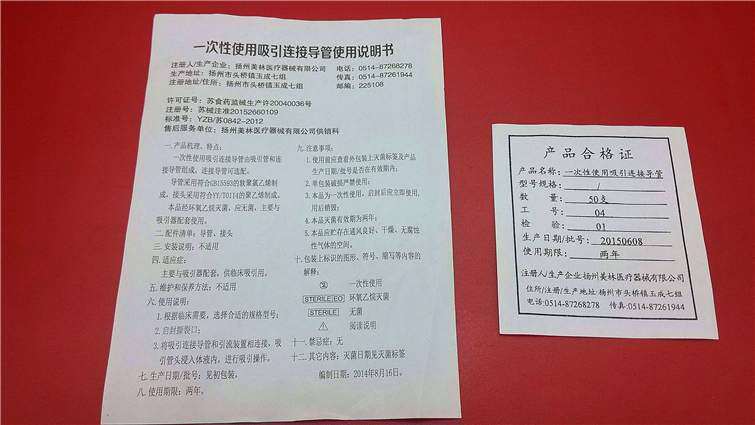 一次性使用吸引连接导管使用说明书
注册人/生产企业：扬州美林医疗器械有限公司 电话：0514-87268278
生产地址：扬州市头桥镇玉成七组 传真：0514-87261944
注册地址/住所：扬州市头桥镇玉成七组 邮编：225108
许可证号：苏食药监械生产许20040036号
注册号：苏械注准20152660109
标准号：YZB/苏0842-2012
售后服务单位：扬州美林医疗器械有限公司供销科
一.产品机理、特点：
一次性使用吸引连接导管由吸引管和连
接导管组成，连接导管可选配。
导管采用符合GB15593的软聚氯乙烯制
成，接头采用符合YY/T0114的聚乙烯制成。
本品经环氧乙烷灭菌、应无菌，主要与
吸引器配套使用。
二.配件清单：导管、接头
三.安装说明：不适用
四.适应症：
主要与吸引器配套，供临床吸引用。
五.维护和保养方法：不适用
六.使用说明：
1.根据临床需要，选择合适的规格型号；
2.启封撕裂口；
3.将吸引连接导管和引流装置相连接，吸
引管头浸入体液内，进行吸引操作。
七.生产日期/批号：见初包装。
八.使用期限：两年。
九.注意事项：
1.使用前应查看外包装上灭菌标签及产品
生产日期/批号是否在有效期内；
2.单包装破损严禁使用；
3.本品为一次性使用，启封后应立即使用，
用后销毁；
4.本品灭菌有效期为两年；
5.本品应贮存在通风良好、干燥、无腐蚀
性气体的空间。
十.包装上标识的图形、符号、缩写等内容的
解释：
② 一次性使用
STERILE EO 环氧乙烷灭菌
STERILE 无菌
⚠ 阅读说明
十一.禁忌症：无
十二.其它内容：灭菌日期见灭菌标签
编制日期：2014年8月16日。
产品合格证
产品名称：一次性使用吸引连接导管
型号规格：/
数 量：50支
工 号：04
检 验：01
生产日期/批号：20150608
使用期限：两年
注册人/生产企业扬州美林医疗器械有限公司
住所/注册/生产地址：扬州市头桥镇玉成七组
电话：0514-87268278 传真：0514-87261944